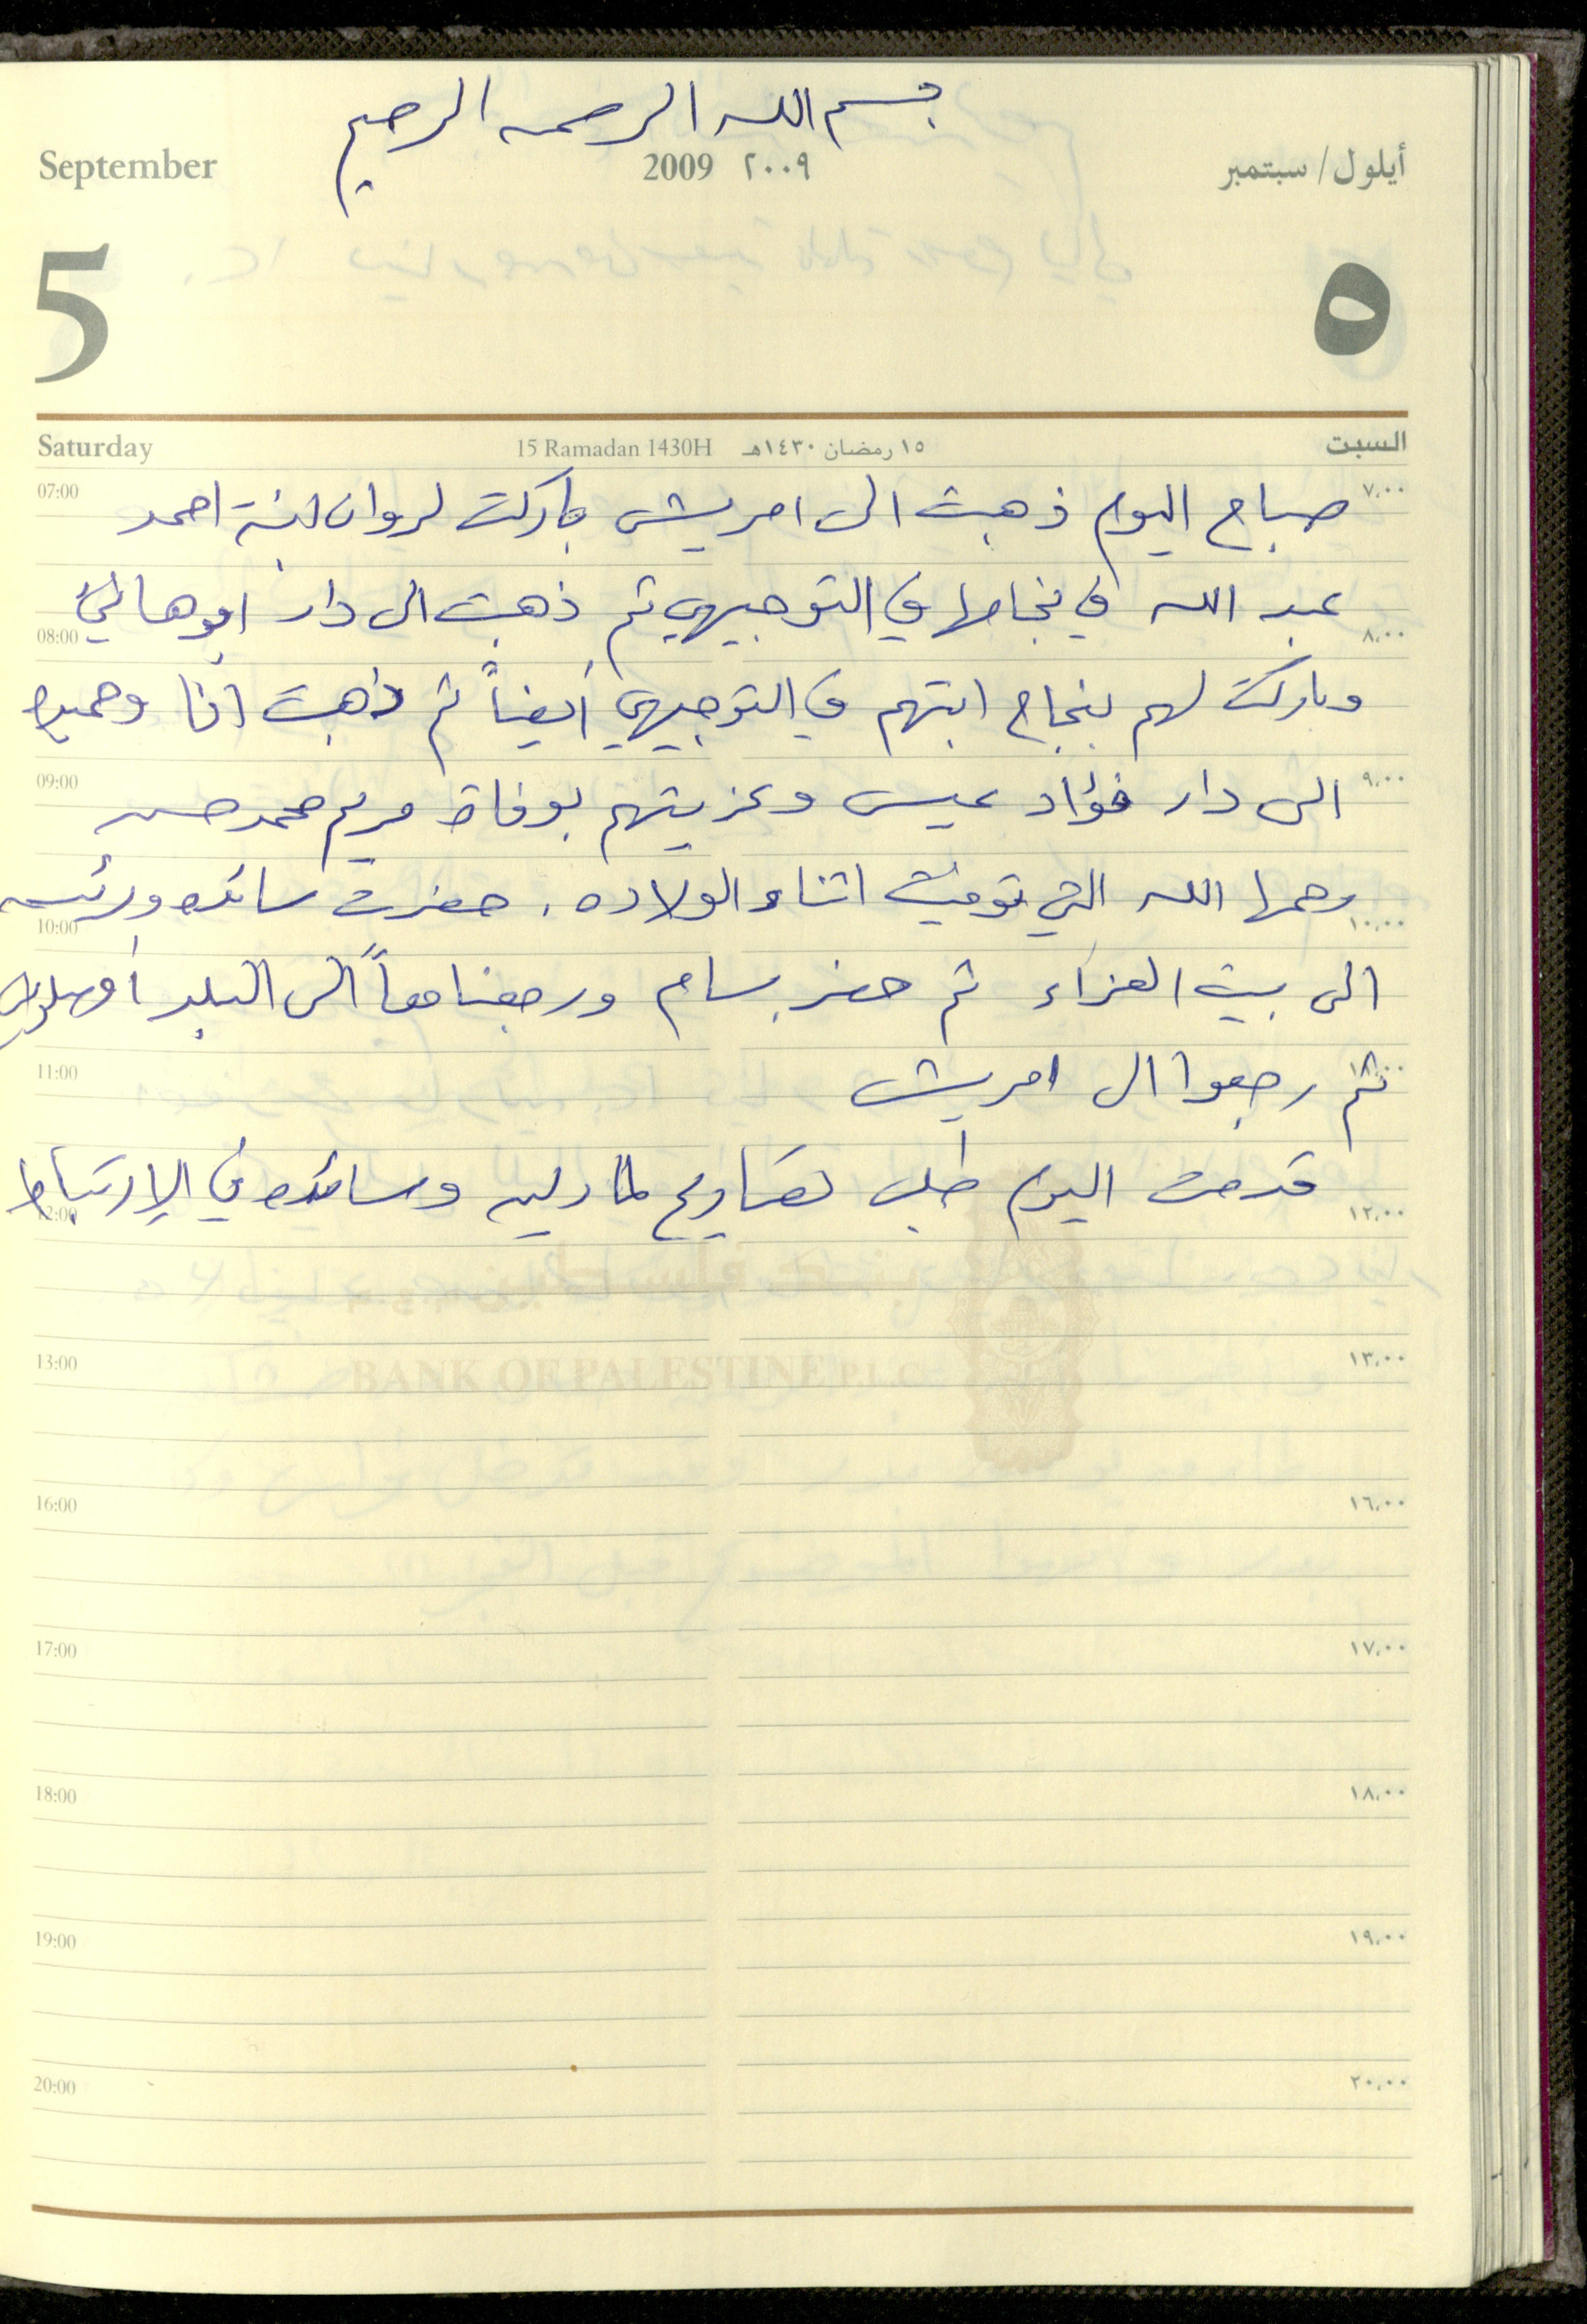 بسم الله الرحمن الرحيم
September 2009 ٢٠٠٩ أيلول/ سبتمبر
5 ٥
Saturday 15 Ramadan 1430H ١٥ رمضان ١٤٣٠هـ السبت
07:00 ٧,٠٠
صباح اليوم ذهبت الى امريش باركت لروان ابنة احمد
عبد الله في نجاحها في التوجيهي ثم ذهبت الى دار ابو هاني
08:00 ٨,٠٠
وباركت لهم بنجاح ابنتهم في التوجيهي أيضاً ثم ذهبت انا
09:00 ٩,٠٠
الى دار فؤاد عيسى وعزيتهم بوفاة مريم محمد حسن
رحمها الله التي توفيت اثناء الولاده . حضرت سائده
10:00 ١٠,٠٠
الى بيت العزاء ثم حضر بسام ورجعنا معاً الى البلد
11:00 ١١,٠٠
ثم رجعوا الى امريش
قدمت اليوم طلب تصاريح لمادلين وسائده في الإرتباط
12:00 ١٢,٠٠
BANK OF PALESTINE P.L.C
13:00 ١٣,٠٠
16:00 ١٦,٠٠
17:00 ١٧,٠٠
18:00 ١٨,٠٠
19:00 ١٩,٠٠
20:00 ٢٠,٠٠